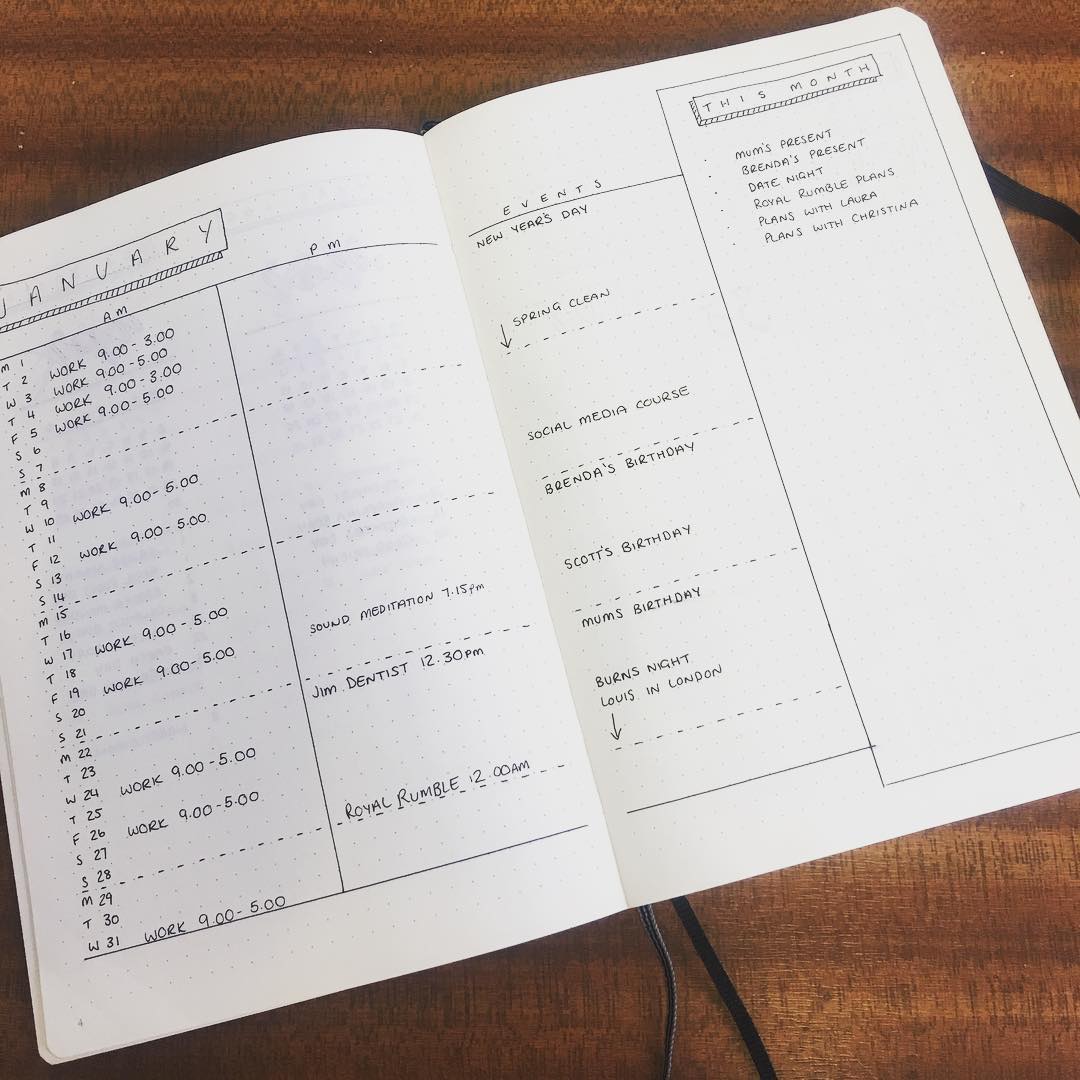 JANUARY
AM
PM
M 1
T 2 WORK 9.00-3.00
W 3 WORK 9.00-5.00
T 4 WORK 9.00-3.00
F 5 WORK 9.00-5.00
S 6
S 7
M 8
T 9
W 10 WORK 9.00-5.00
T 11
F 12 WORK 9.00-5.00
S 13
S 14
M 15
T 16
W 17 WORK 9.00-5.00
T 18
F 19 WORK 9.00-5.00
S 20
S 21
M 22
T 23
W 24 WORK 9.00-5.00
T 25
F 26 WORK 9.00-5.00
S 27
S 28
M 29
T 30
W 31 WORK 9.00-5.00
SOUND MEDITATION 7.15pm
JIM DENTIST 12.30pm
ROYAL RUMBLE 12.00AM
4
EVENTS
NEW YEAR'S DAY
SPRING CLEAN
SOCIAL MEDIA COURSE
BRENDA'S BIRTHDAY
SCOTT'S BIRTHDAY
MUMS BIRTHDAY
BURNS NIGHT
LOUIS IN LONDON
THIS MONTH
· MUM'S PRESENT
· BRENDA'S PRESENT
· DATE NIGHT
· ROYAL RUMBLE PLANS
· PLANS WITH LAURA
· PLANS WITH CHRISTINA